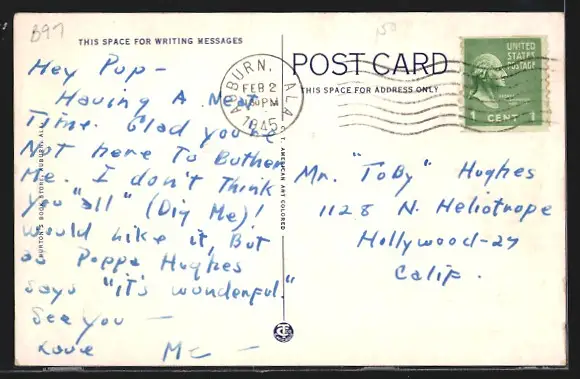 B97
150
THIS SPACE FOR WRITING MESSAGES
Hey Pup -
Having A Neat
Time. Glad you're
Not here To Buther
Me. I don't Think
you "all" (Dig Me)!
would like it, But
as Poppa Hughes
says "it's wonderful."
See you -
Love Me -
BURTON'S BOOK STORE, AUBURN, ALA.
C.T. AMERICAN ART COLORED
POST CARD
THIS SPACE FOR ADDRESS ONLY
AUBURN, ALA.
FEB 2
PM
1945
UNITED
STATES
POSTAGE
1 CENT 1
Mr. "ToBy" Hughes
1128 N. Heliotrope
Hollywood-27
Calif.